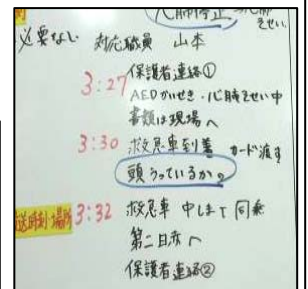 心肺停止
そせい
必要なし 対応職員 山本
3:27 保護者連絡①
AEDかいせき・心肺そせい中
書類は現場へ
3:30 救急車到着 カード渡す
頭うっているか。
送時刻・場所 3:32 救急車 中しまて同乗
第二日赤へ
保護者連絡②